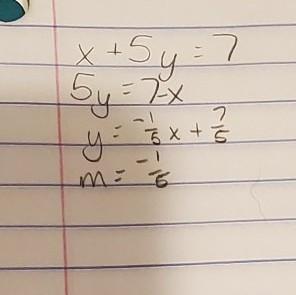 x + 5y = 7
5y = 7-x
y = -1/5 x + 7/5
m = -1/5